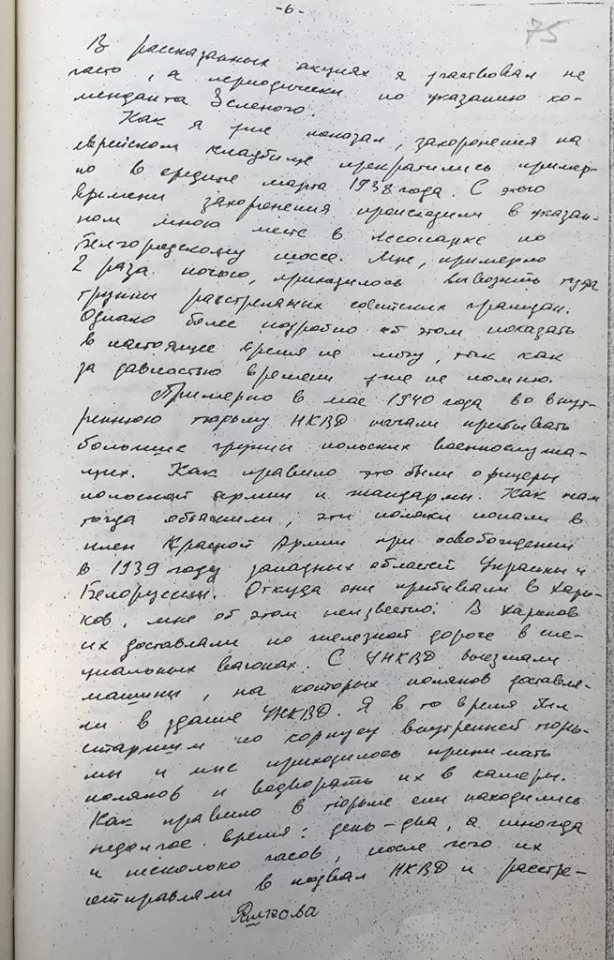 -6-
75
В рассказанных акциях я участвовал не
часто, а периодически по указанию ко-
менданта Зеленого.
Как я уже показал, захоронения на
еврейском кладбище прекратились пример-
но в средине марта 1938 года. С этого
времени захоронения происходили в указан-
ном мною месте в лесопарке по
Белгородскому шоссе. Мне, примерно
2 раза пришлось вывозить туда
группы расстрелянных советских граждан.
Однако более подробно об этом показать
в настоящее время не могу, так как
за давностью времени уже не помню.
Примерно в мае 1940 года во внут-
реннюю тюрьму НКВД начали прибывать
большие группы польских военнослужа-
щих. Как правило это были офицеры
польской армии и жандармы. Как нам
тогда объяснили, эти поляки попали в
плен Красной Армии при освобождении
в 1939 году западных областей Украины и
Белоруссии. Откуда они прибывали в Харь-
ков, мне об этом неизвестно. В Харьков
их доставляли по железной дороге в спе-
циальных вагонах. С УНКВД выезжали
машины, на которых поляков доставля-
ли в здание УНКВД. Я в то время был
старшим по корпусу внутренней тюрь-
мы и мне приходилось принимать
поляков и водворять их в камеры.
Как правило в тюрьме они находились
недолгое время: день-два, а иногда
и несколько часов, после чего их
отправляли в подвал НКВД и расстре-